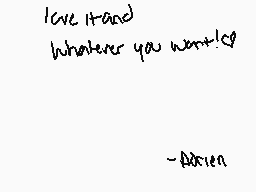 love it and
whatever you want!♡
-Adrien